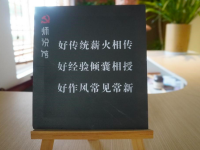 好传统薪火相传
好经验倾囊相授
好作风常见常新